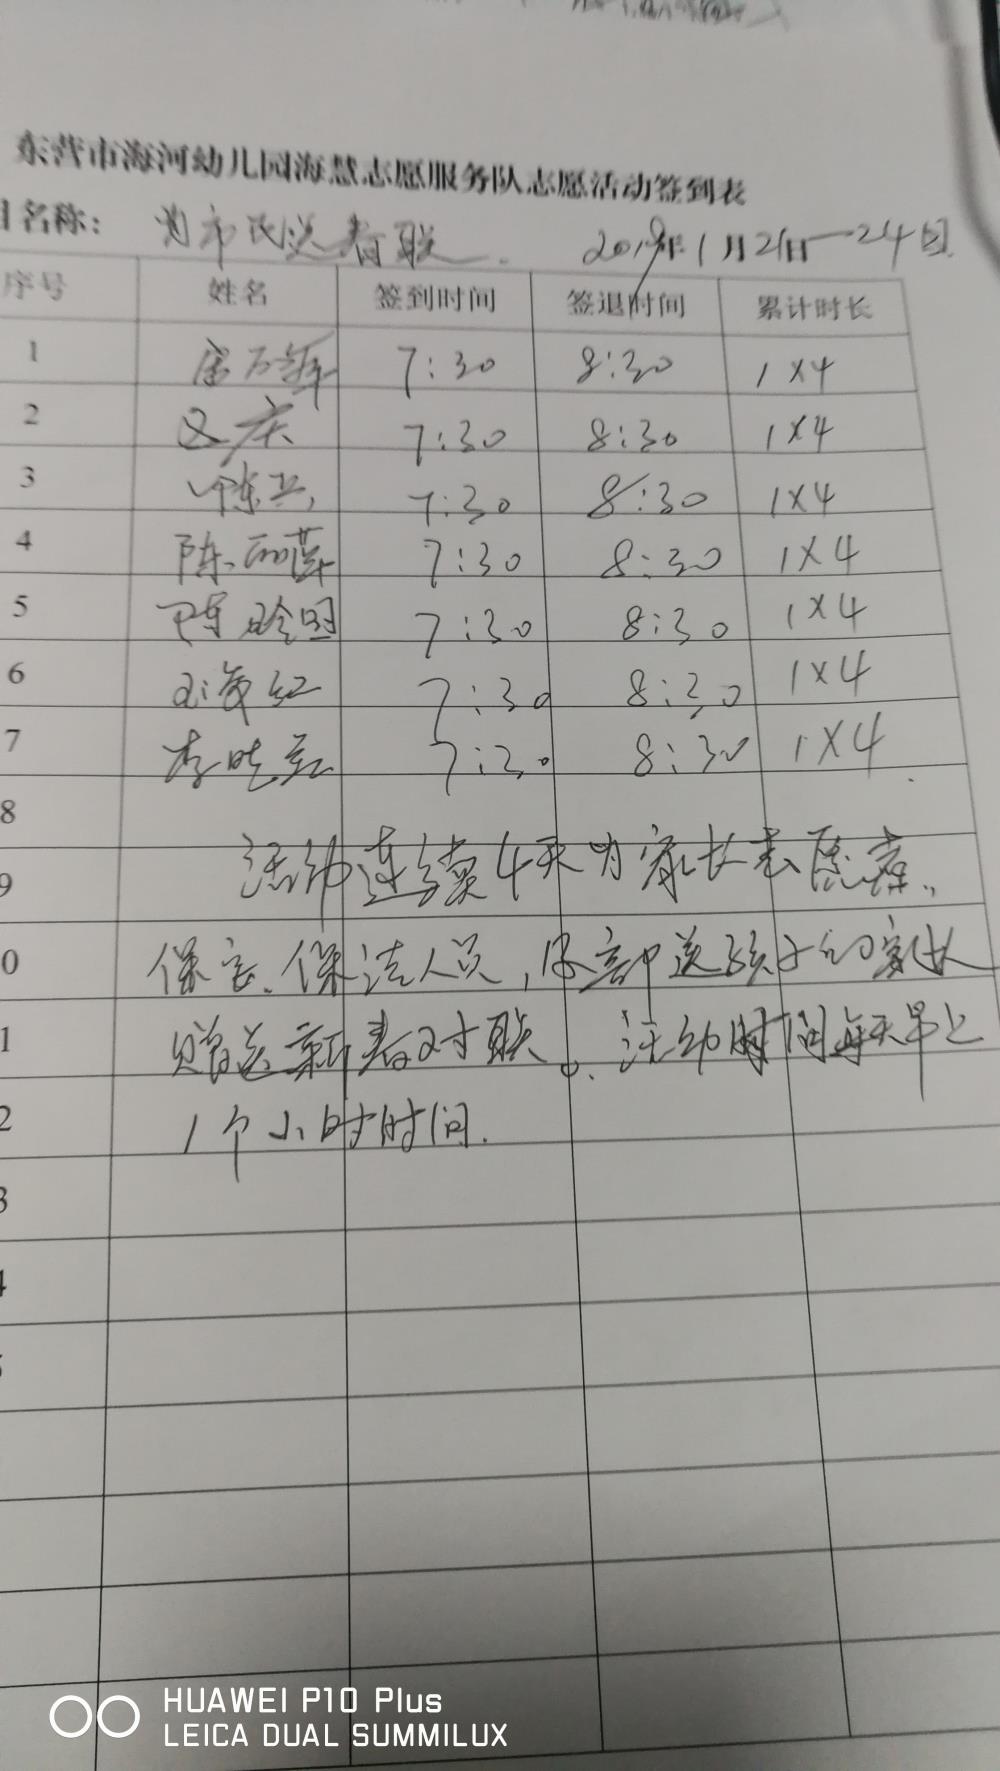 东营市海河幼儿园海慧志愿服务队志愿活动签到表
目名称: 为市民送春联. 2019年1月21日—24日
序号 姓名 签到时间 签退时间 累计时长
1 7:30 8:30 1×4
2 7:30 8:30 1×4
3 7:30 8:30 1×4
4 陈 7:30 8:30 1×4
5 7:30 8:30 1×4
6 海红 7:30 8:30 1×4
7 李晓 7:30 8:30 1×4
8
9 活动连续4天为家长志愿者、
0 保安、保洁人员, 送孩子的家长
1 赠送新春对联。活动时间每天早上
2 1个小时时间.
3
4
5
HUAWEI P10 Plus
LEICA DUAL SUMMILUX